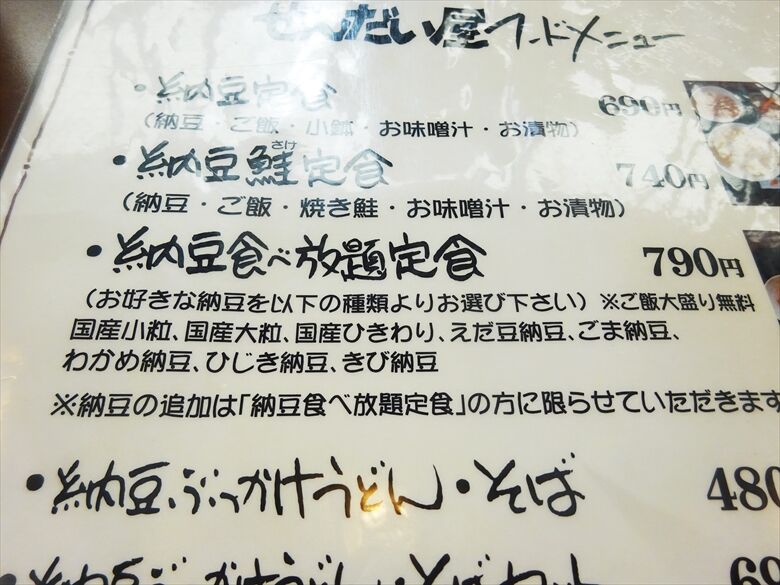 せんだい屋フードメニュー
・納豆定食 690円
(納豆・ご飯・小鉢・お味噌汁・お漬物)
さけ
・納豆鮭定食 740円
(納豆・ご飯・焼き鮭・お味噌汁・お漬物)
・納豆食べ放題定食 790円
(お好きな納豆を以下の種類よりお選び下さい) ※ご飯大盛り無料
国産小粒、国産大粒、国産ひきわり、えだ豆納豆、ごま納豆、
わかめ納豆、ひじき納豆、きび納豆
※納豆の追加は「納豆食べ放題定食」の方に限らせていただきます
・納豆ぶっかけうどん・そば 480